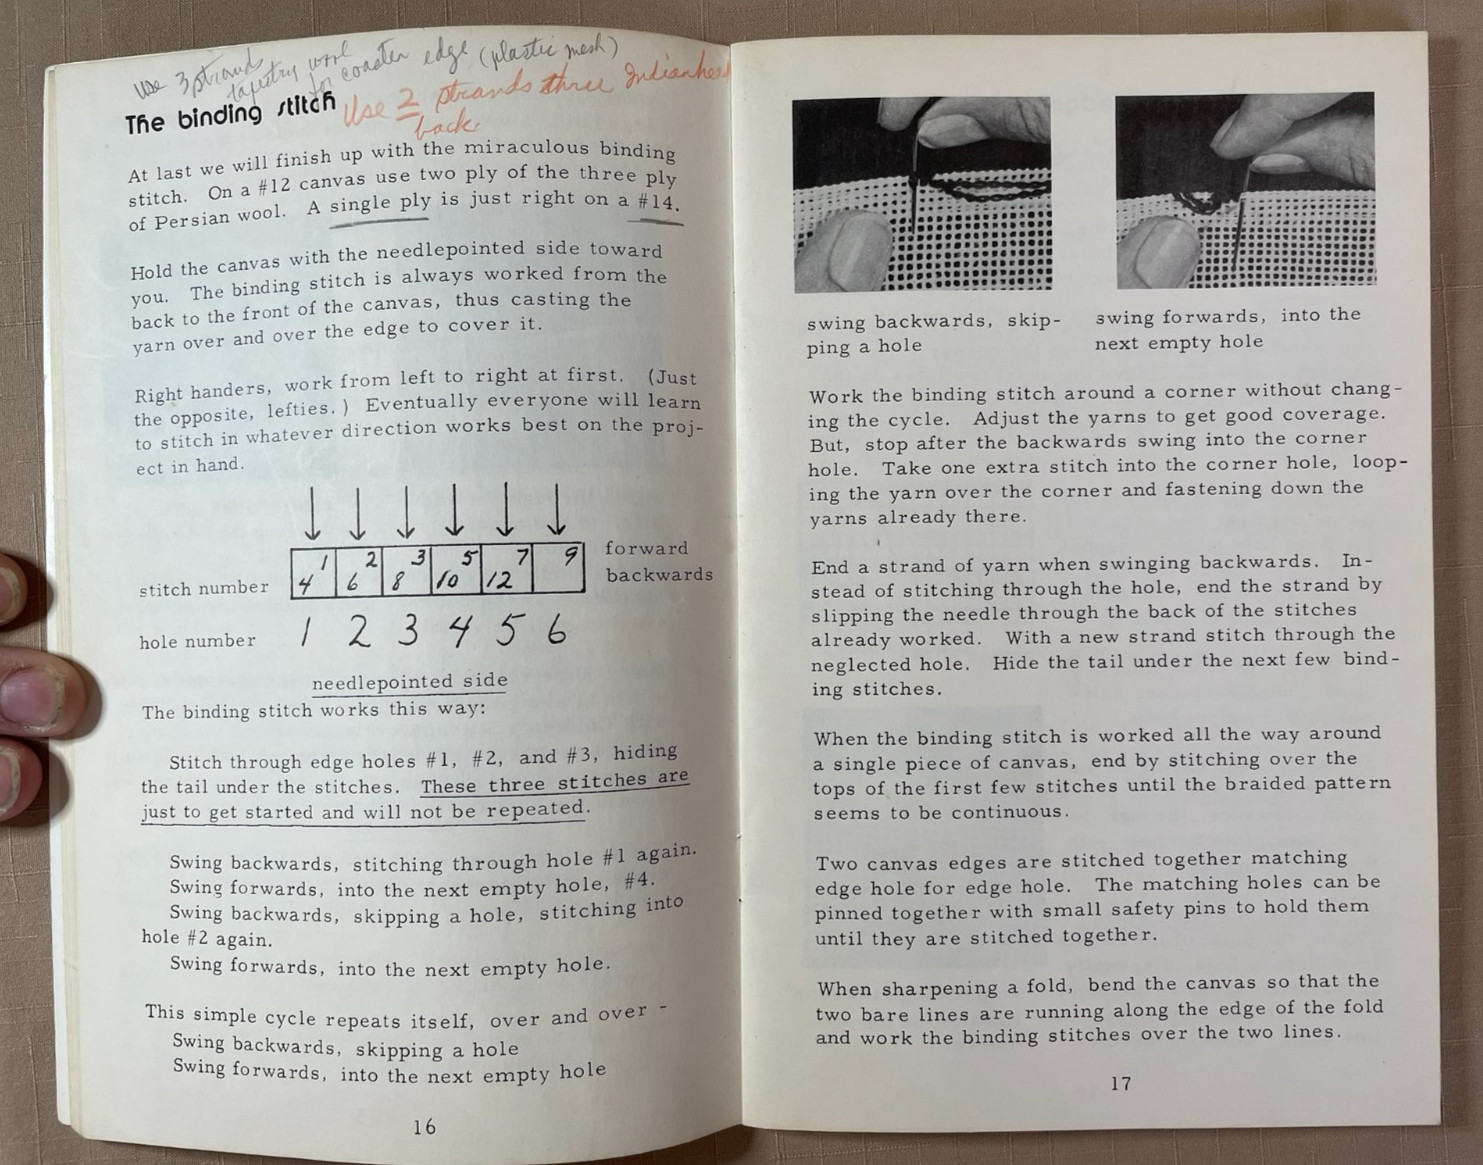 Use 3 strands
tapestry wool
for coaster edge (plastic mesh)
The binding stitch
Use 2 strands three Indianhead
back
At last we will finish up with the miraculous binding
stitch. On a #12 canvas use two ply of the three ply
of Persian wool. A single ply is just right on a #14.
Hold the canvas with the needlepointed side toward
you. The binding stitch is always worked from the
back to the front of the canvas, thus casting the
yarn over and over the edge to cover it.
Right handers, work from left to right at first. (Just
the opposite, lefties.) Eventually everyone will learn
to stitch in whatever direction works best on the proj-
ect in hand.
1 2 3 5 7 9 forward
stitch number 4 6 8 10 12 backwards
hole number 1 2 3 4 5 6
needlepointed side
The binding stitch works this way:
Stitch through edge holes #1, #2, and #3, hiding
the tail under the stitches. These three stitches are
just to get started and will not be repeated.
Swing backwards, stitching through hole #1 again.
Swing forwards, into the next empty hole, #4.
Swing backwards, skipping a hole, stitching into
hole #2 again.
Swing forwards, into the next empty hole.
This simple cycle repeats itself, over and over -
Swing backwards, skipping a hole
Swing forwards, into the next empty hole
16
swing backwards, skip-
ping a hole
swing forwards, into the
next empty hole
Work the binding stitch around a corner without chang-
ing the cycle. Adjust the yarns to get good coverage.
But, stop after the backwards swing into the corner
hole. Take one extra stitch into the corner hole, loop-
ing the yarn over the corner and fastening down the
yarns already there.
End a strand of yarn when swinging backwards. In-
stead of stitching through the hole, end the strand by
slipping the needle through the back of the stitches
already worked. With a new strand stitch through the
neglected hole. Hide the tail under the next few bind-
ing stitches.
When the binding stitch is worked all the way around
a single piece of canvas, end by stitching over the
tops of the first few stitches until the braided pattern
seems to be continuous.
Two canvas edges are stitched together matching
edge hole for edge hole. The matching holes can be
pinned together with small safety pins to hold them
until they are stitched together.
When sharpening a fold, bend the canvas so that the
two bare lines are running along the edge of the fold
and work the binding stitches over the two lines.
17